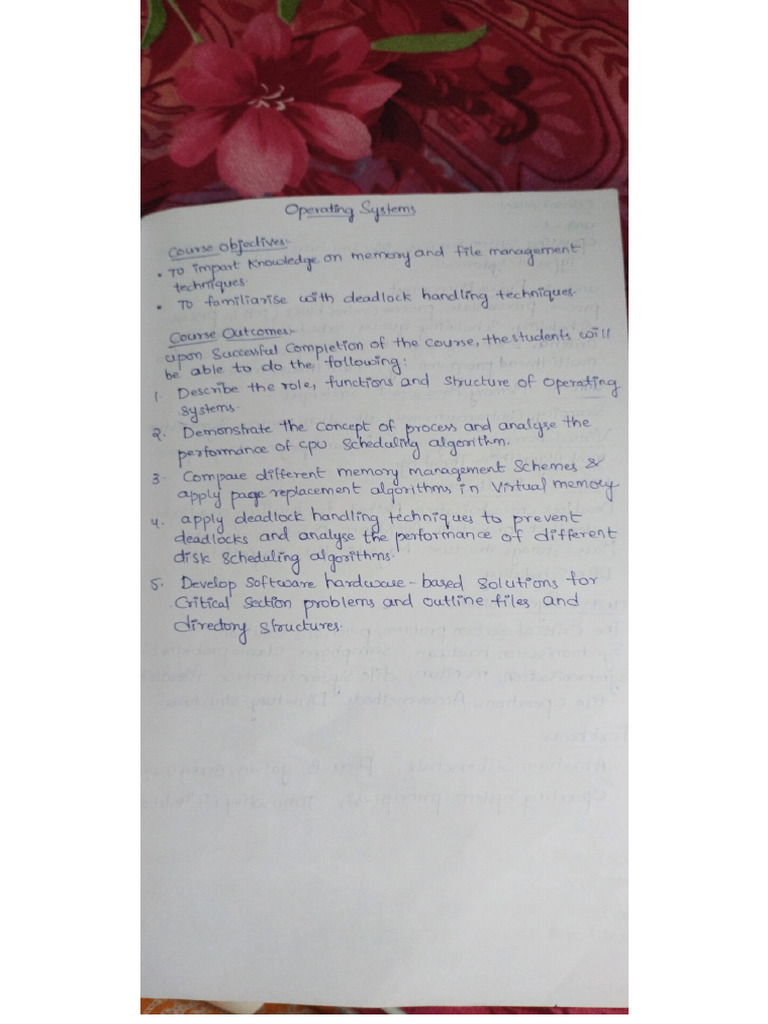 Operating Systems
Course Objectives:-
• To impart knowledge on memory and file management
techniques.
• To familiarise with deadlock handling techniques.
Course Outcomes:-
upon Successful Completion of the course, the students will
be able to do the following:
1. Describe the role, functions and Structure of Operating
Systems.
2. Demonstrate the concept of process and analyse the
performance of CPU Scheduling algorithm.
3. Compare different memory management Schemes &
apply page replacement algorithms in Virtual memory
4. apply deadlock handling techniques to prevent
deadlocks and analyse the performance of different
disk Scheduling algorithms.
5. Develop Software hardware-based Solutions for
Critical Section problems and outline files and
directory structures.